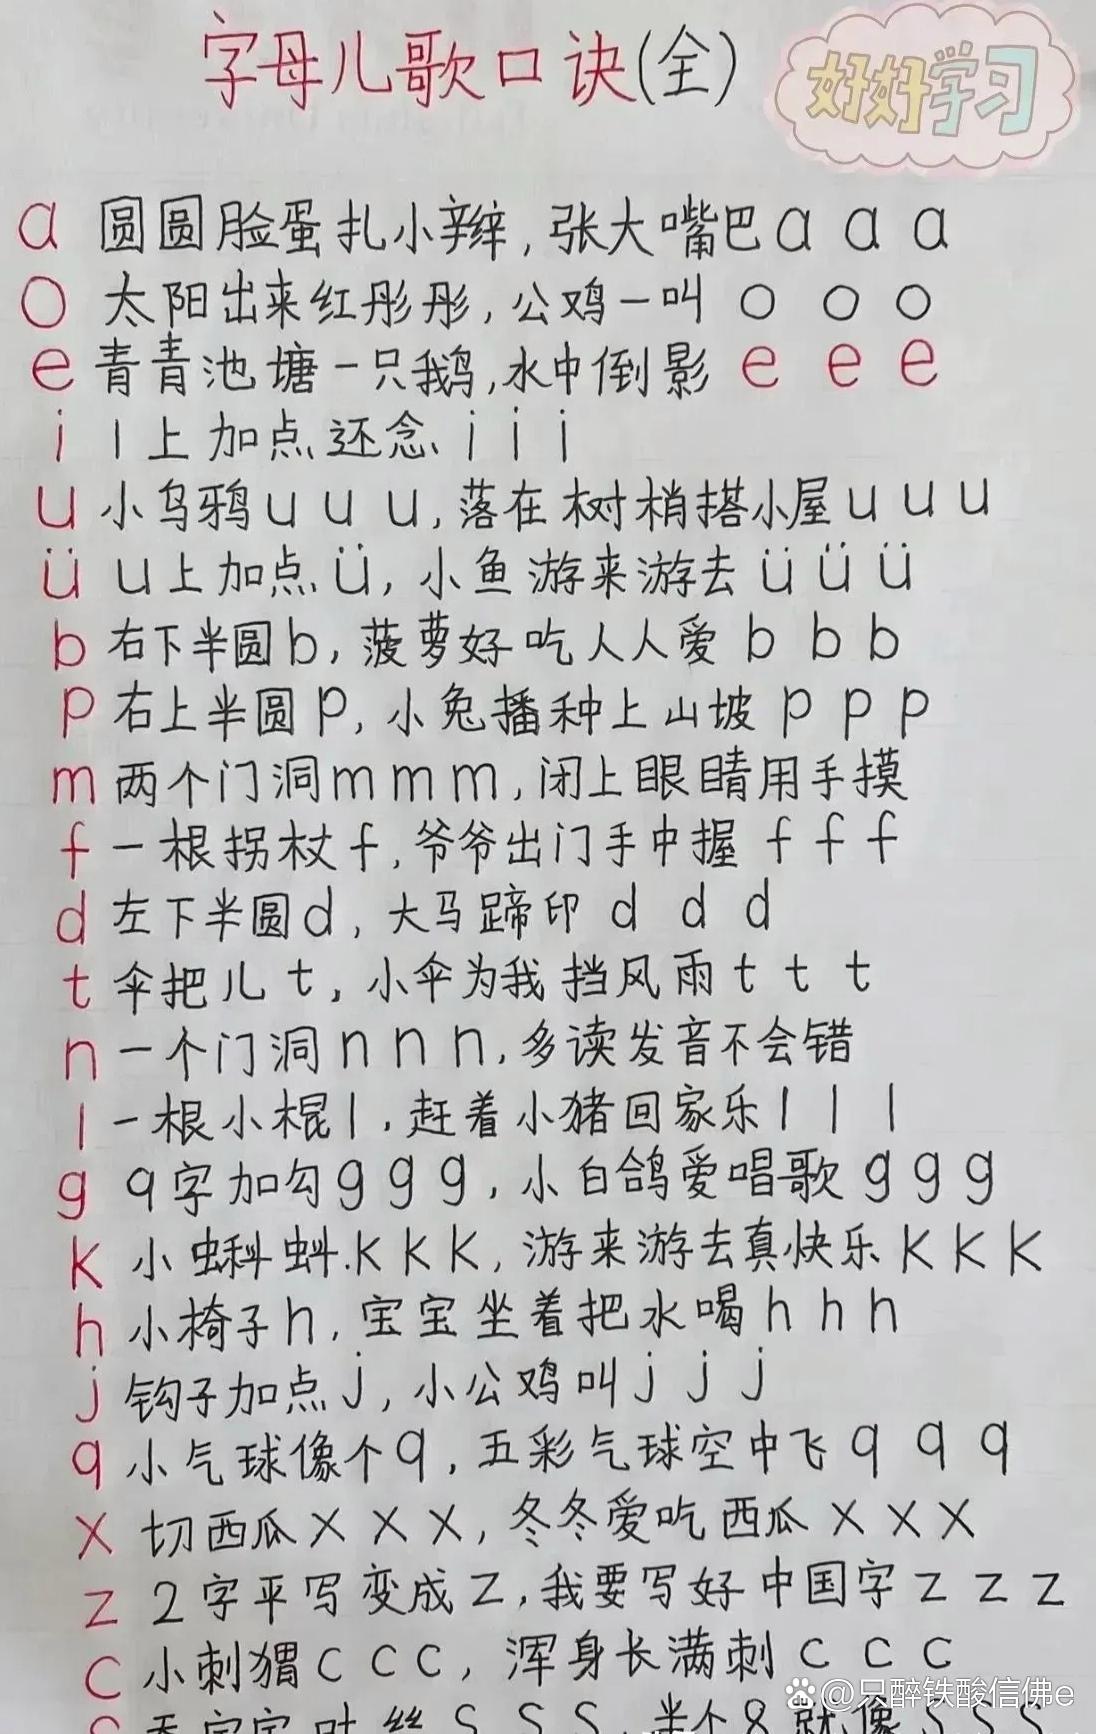 字母儿歌口诀(全)
好好学习
a 圆圆脸蛋扎小辫,张大嘴巴a a a
o 太阳出来红彤彤,公鸡一叫 o o o
e 青青池塘一只鹅,水中倒影 e e e
i 1上加点还念 i i i
u 小乌鸦u u u,落在树梢搭小屋u u u
ü u上加点ü,小鱼游来游去 ü ü ü
b 右下半圆b,菠萝好吃人人爱 b b b
p 右上半圆p,小兔播种上山坡 p p p
m 两个门洞m m m,闭上眼睛用手摸
f 一根拐杖f,爷爷出门手中握 f f f
d 左下半圆d,大马蹄印 d d d
t 伞把儿 t,小伞为我挡风雨 t t t
n 一个门洞 n n n,多读发音不会错
l 一根小棍l,赶着小猪回家乐 l l l
g 9字加勾g g g,小白鸽爱唱歌 g g g
k 小蝌蚪.k k k,游来游去真快乐 k k k
h 小椅子h,宝宝坐着把水喝 h h h
j 钩子加点j,小公鸡叫 j j j
q 小气球像个q,五彩气球空中飞 q q q
x 切西瓜 x x x,冬冬爱吃西瓜 x x x
z 2字平写变成z,我要写好中国字 z z z
c 小刺猬c c c,浑身长满刺 c c c
@只醉铁酸信佛e
s 吐丝 s s s,半个8就像 s s s